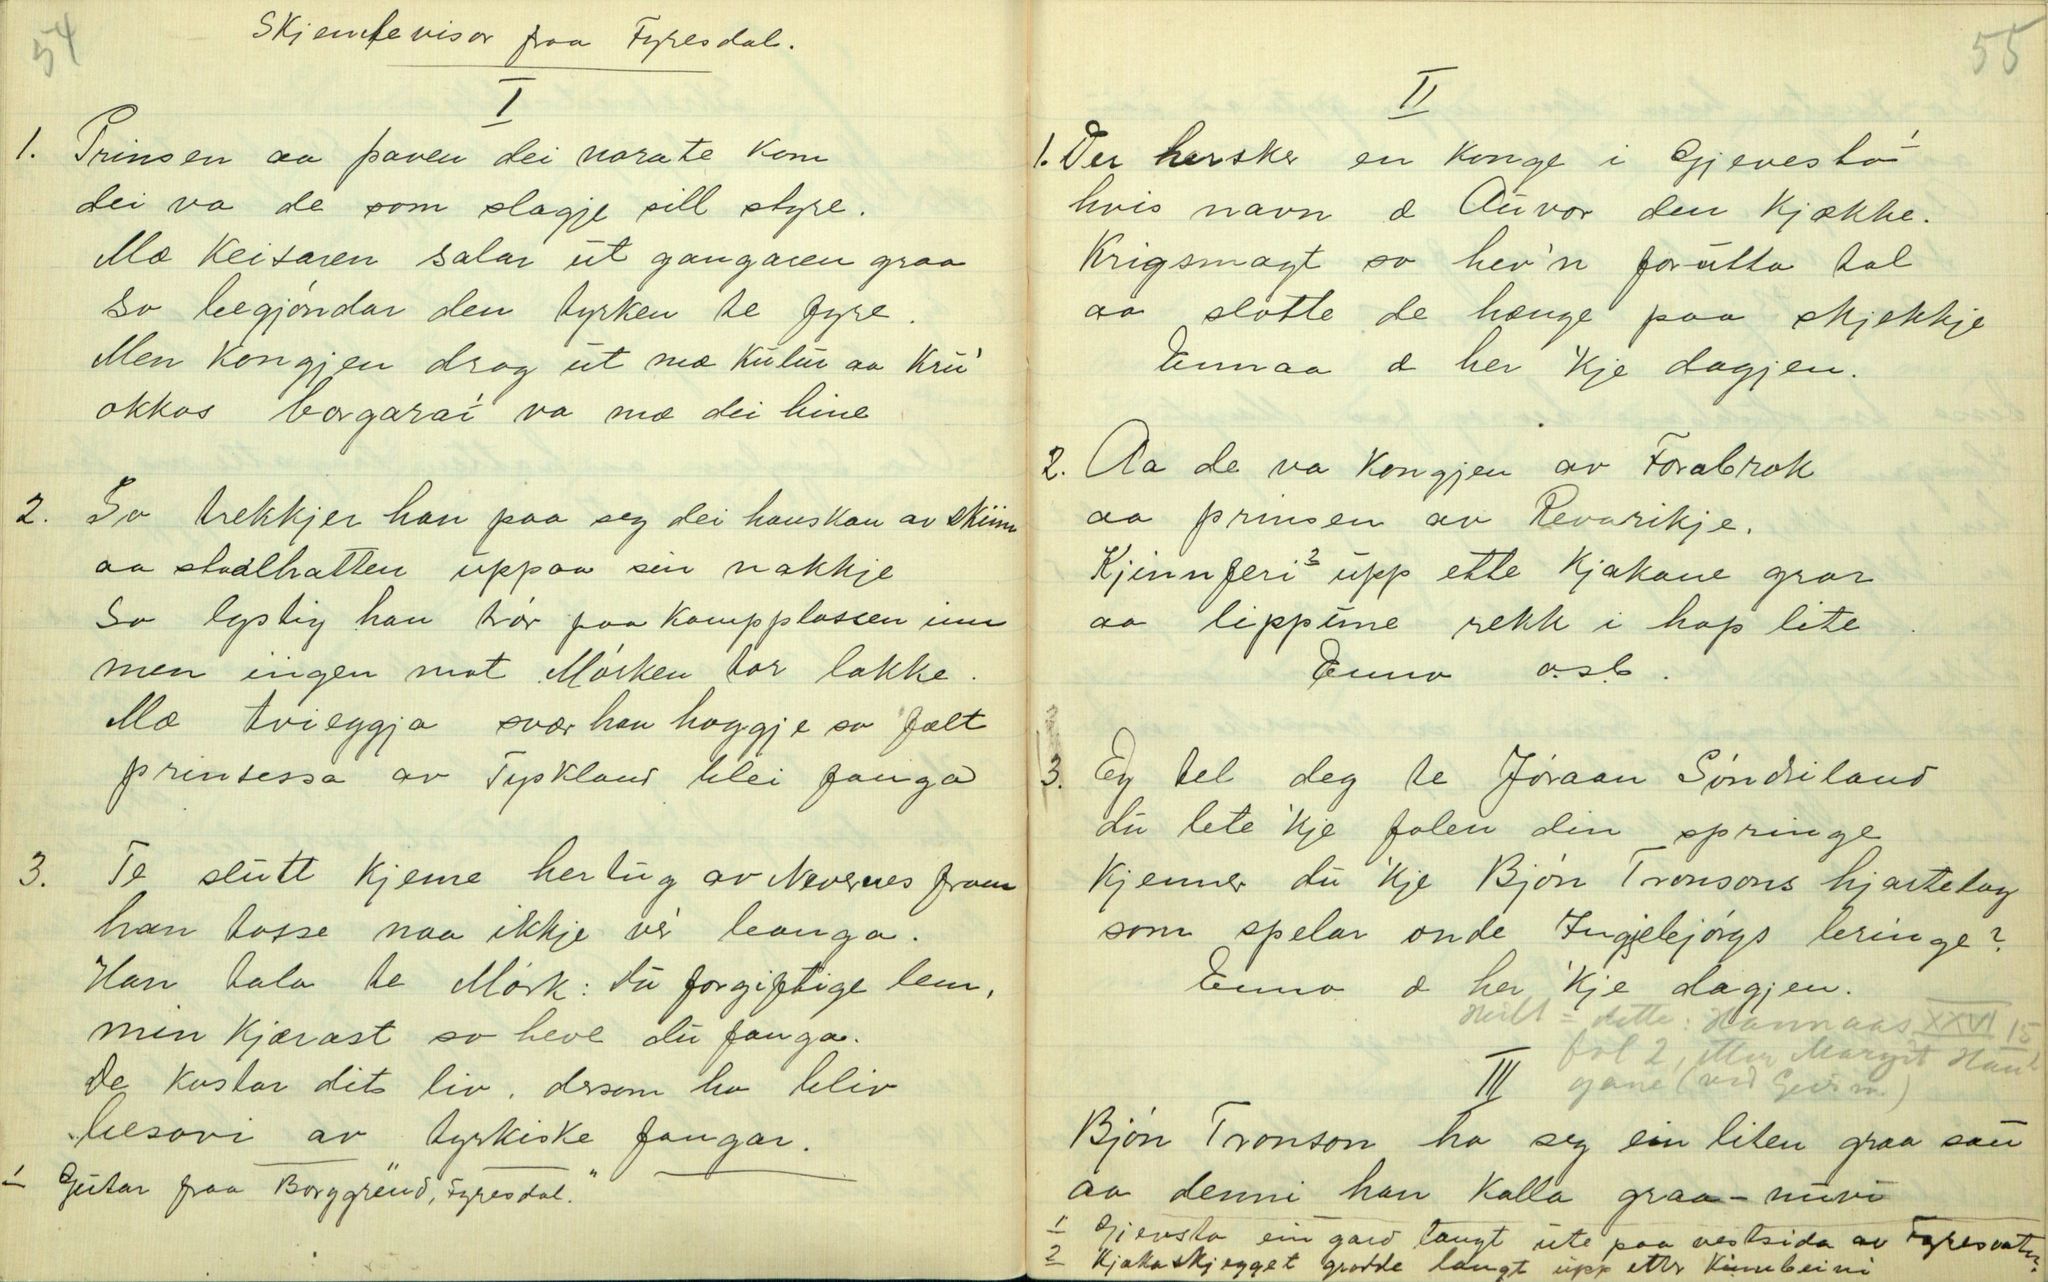 54
Skjemtevisor fraa Fyresdal.
I
1. Prinsen aa paven dei vara te kom
dei va de som slagje sill styre.
Mæ Keisaren salar ut gangaren graa
so begjóndar den tyrken te fyre.
Men Kongjen drog ut mæ Kulur aa Kru'
okkos borgarai¹ va mæ dei hine
2. So trekkjer han paa seg dei hanskan av skiinn
aa staalhatten uppaa sin nakkje
So lystig han trór paa Kampplassen inn
men ingen mot Mórken tor lakke.
Mæ tvieggja svær han hoggje so fælt
prinsessa av Tyskland blei fanga
3. Te slutt Kjeme hertug av Nevernes fram
han tosse naa ikkje vé' leanga.
Han tala te Mórk: du forgiftige lem,
min Kjærast so heve du fanga.
De Kostar dits liv, dersom ho bliv
besovi av tyrkiske fangar.
1 Gutar fraa "Borggrend, Fyresdal."
55
II
1. Der hersker en Konge i Gjevestó¹
hvis navn æ Auvor den Kjække.
Krigsmagt so hev'n forutta tal
aa slotte de hænge paa skjekkje
Ennaa æ her 'kje dagjen.
2. Aa de va Kongjen av Forabrok
aa prinsen av Revarikje.
Kjinnferi² upp ette Kjakane gror
aa lippune rekk i hop lite
Enno o.s.b.
3. Eg tel deg te Jóraan Sóndriland
du lete 'kje folen din springe
Kjenner du 'kje Bjón Tronsons hjartelag
som spelar onde Ingjebjórgs bringe?
Enno æ her 'Kje dagjen.
Heilt = dette: Hannaas XXVI 15
fol 2, etter Margit Haut
gane (ved Geirm)
III
Bjón Tronson ha seg ein liten graa sau
aa denni han Kalla graa-nuvi
1 Gjevsto ein gard langt ute paa vestsida av Fyresvatn.
2 Kjakaskjegget grodde langt upp etter Kinnbeini